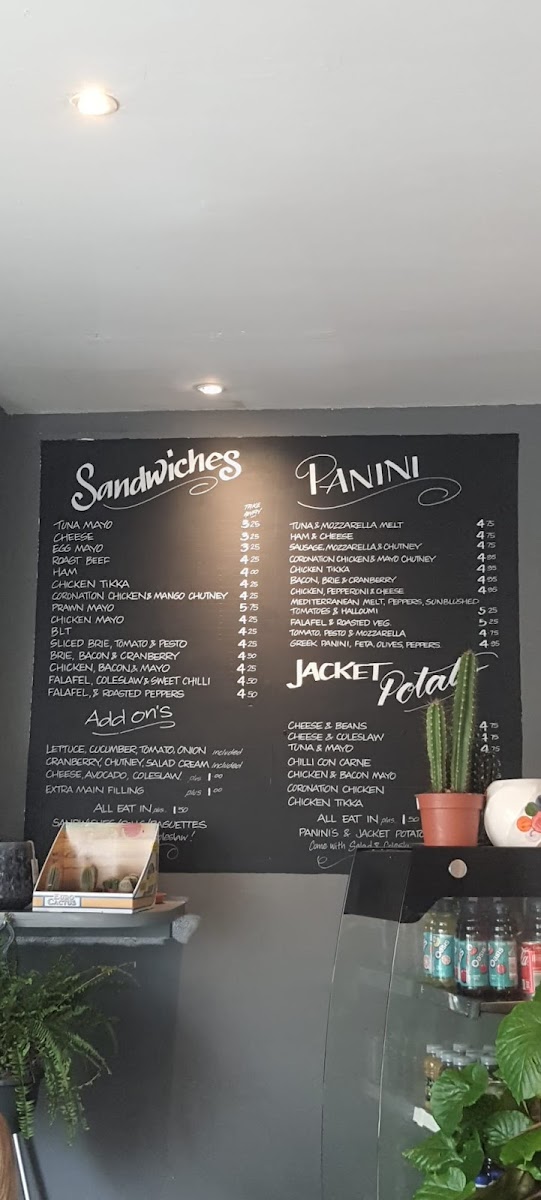 Sandwiches
TAKE AWAY
TUNA MAYO 3 25
CHEESE 3 25
EGG MAYO 3 25
ROAST BEEF 4 25
HAM 4 00
CHICKEN TIKKA 4 25
CORONATION CHICKEN & MANGO CHUTNEY 4 25
PRAWN MAYO 5 75
CHICKEN MAYO 4 25
BLT 4 25
SLICED BRIE, TOMATO & PESTO 4 25
BRIE, BACON & CRANBERRY 4 50
CHICKEN, BACON, & MAYO 4 25
FALAFEL, COLESLAW & SWEET CHILLI 4 50
FALAFEL, & ROASTED PEPPERS 4 50
Add on's
LETTUCE, CUCUMBER, TOMATO, ONION included
CRANBERRY, CHUTNEY, SALAD CREAM included
CHEESE, AVOCADO, COLESLAW plus 1 00
EXTRA MAIN FILLING plus 1 00
ALL EAT IN plus 1 50
PANINI
TUNA & MOZZARELLA MELT 4 75
HAM & CHEESE 4 75
SAUSAGE, MOZZARELLA & CHUTNEY 4 75
CORONATION CHICKEN & MAYO CHUTNEY 4 85
CHICKEN TIKKA 4 85
BACON, BRIE & CRANBERRY 4 85
CHICKEN, PEPPERONI & CHEESE 4 85
MEDITERRANEAN MELT, PEPPERS, SUNBLUSHED
TOMATOES & HALLOUMI 5 25
FALAFEL & ROASTED VEG. 5 25
TOMATO, PESTO & MOZZARELLA 4 75
GREEK PANINI, FETA, OLIVES, PEPPERS. 4 85
JACKET Potato
CHEESE & BEANS 4 75
CHEESE & COLESLAW 75
TUNA & MAYO 4 75
CHILLI CON CARNE
CHICKEN & BACON MAYO
CORONATION CHICKEN
CHICKEN TIKKA
ALL EAT IN plus 1 50
PANINIS & JACKET POTATO
Come with Salad &
CACTUS
Oasis